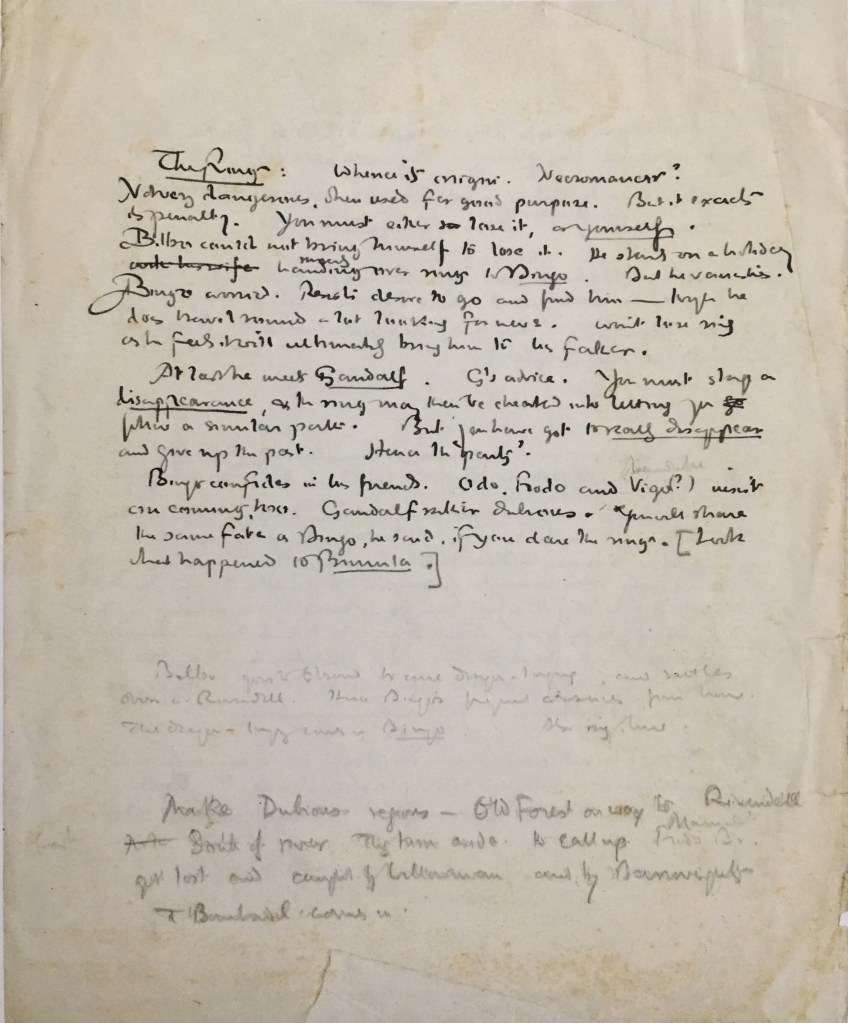 The Ring: Whence its origin. Necromancer?
Not very dangerous, when used for good purpose. But it exacts
its penalty. You must either lose it, or yourself.
Bilbo could not bring himself to lose it. He starts on a holiday
with his wife handing over ring to Bingo. But he vanishes.
Bingo worried. Resists desire to go and find him — though he
does travel round a lot looking for news. Won't lose ring
as he feels it will ultimately bring him to his father.
At last he meets Gandalf. G's advice. You must stage a
disappearance, as the ring may then be cheated into letting you go
follow a similar path. But you have got to really disappear
and give up the past. Hence the 'party'.
Bingo confides in his friends. Odo, Frodo and Vigo(?) insist
on coming too. Gandalf rather dubious. You will share
the same fate as Bingo, he said, if you dare the ring. [Look
what happened to Primula.]
Bilbo goes to Elrond to cure dragon-longing, and settles
down in Rivendell. Hence Bingo's frequent absences from home.
The dragon-longing comes on Bingo. Also ring-lure.
Make Dubious regions — Old Forest on way to Rivendell
South of river They turn aside to call up Frodo Br.
get lost and caught by Willowman and by Barrowwights
T Bombadil comes in.